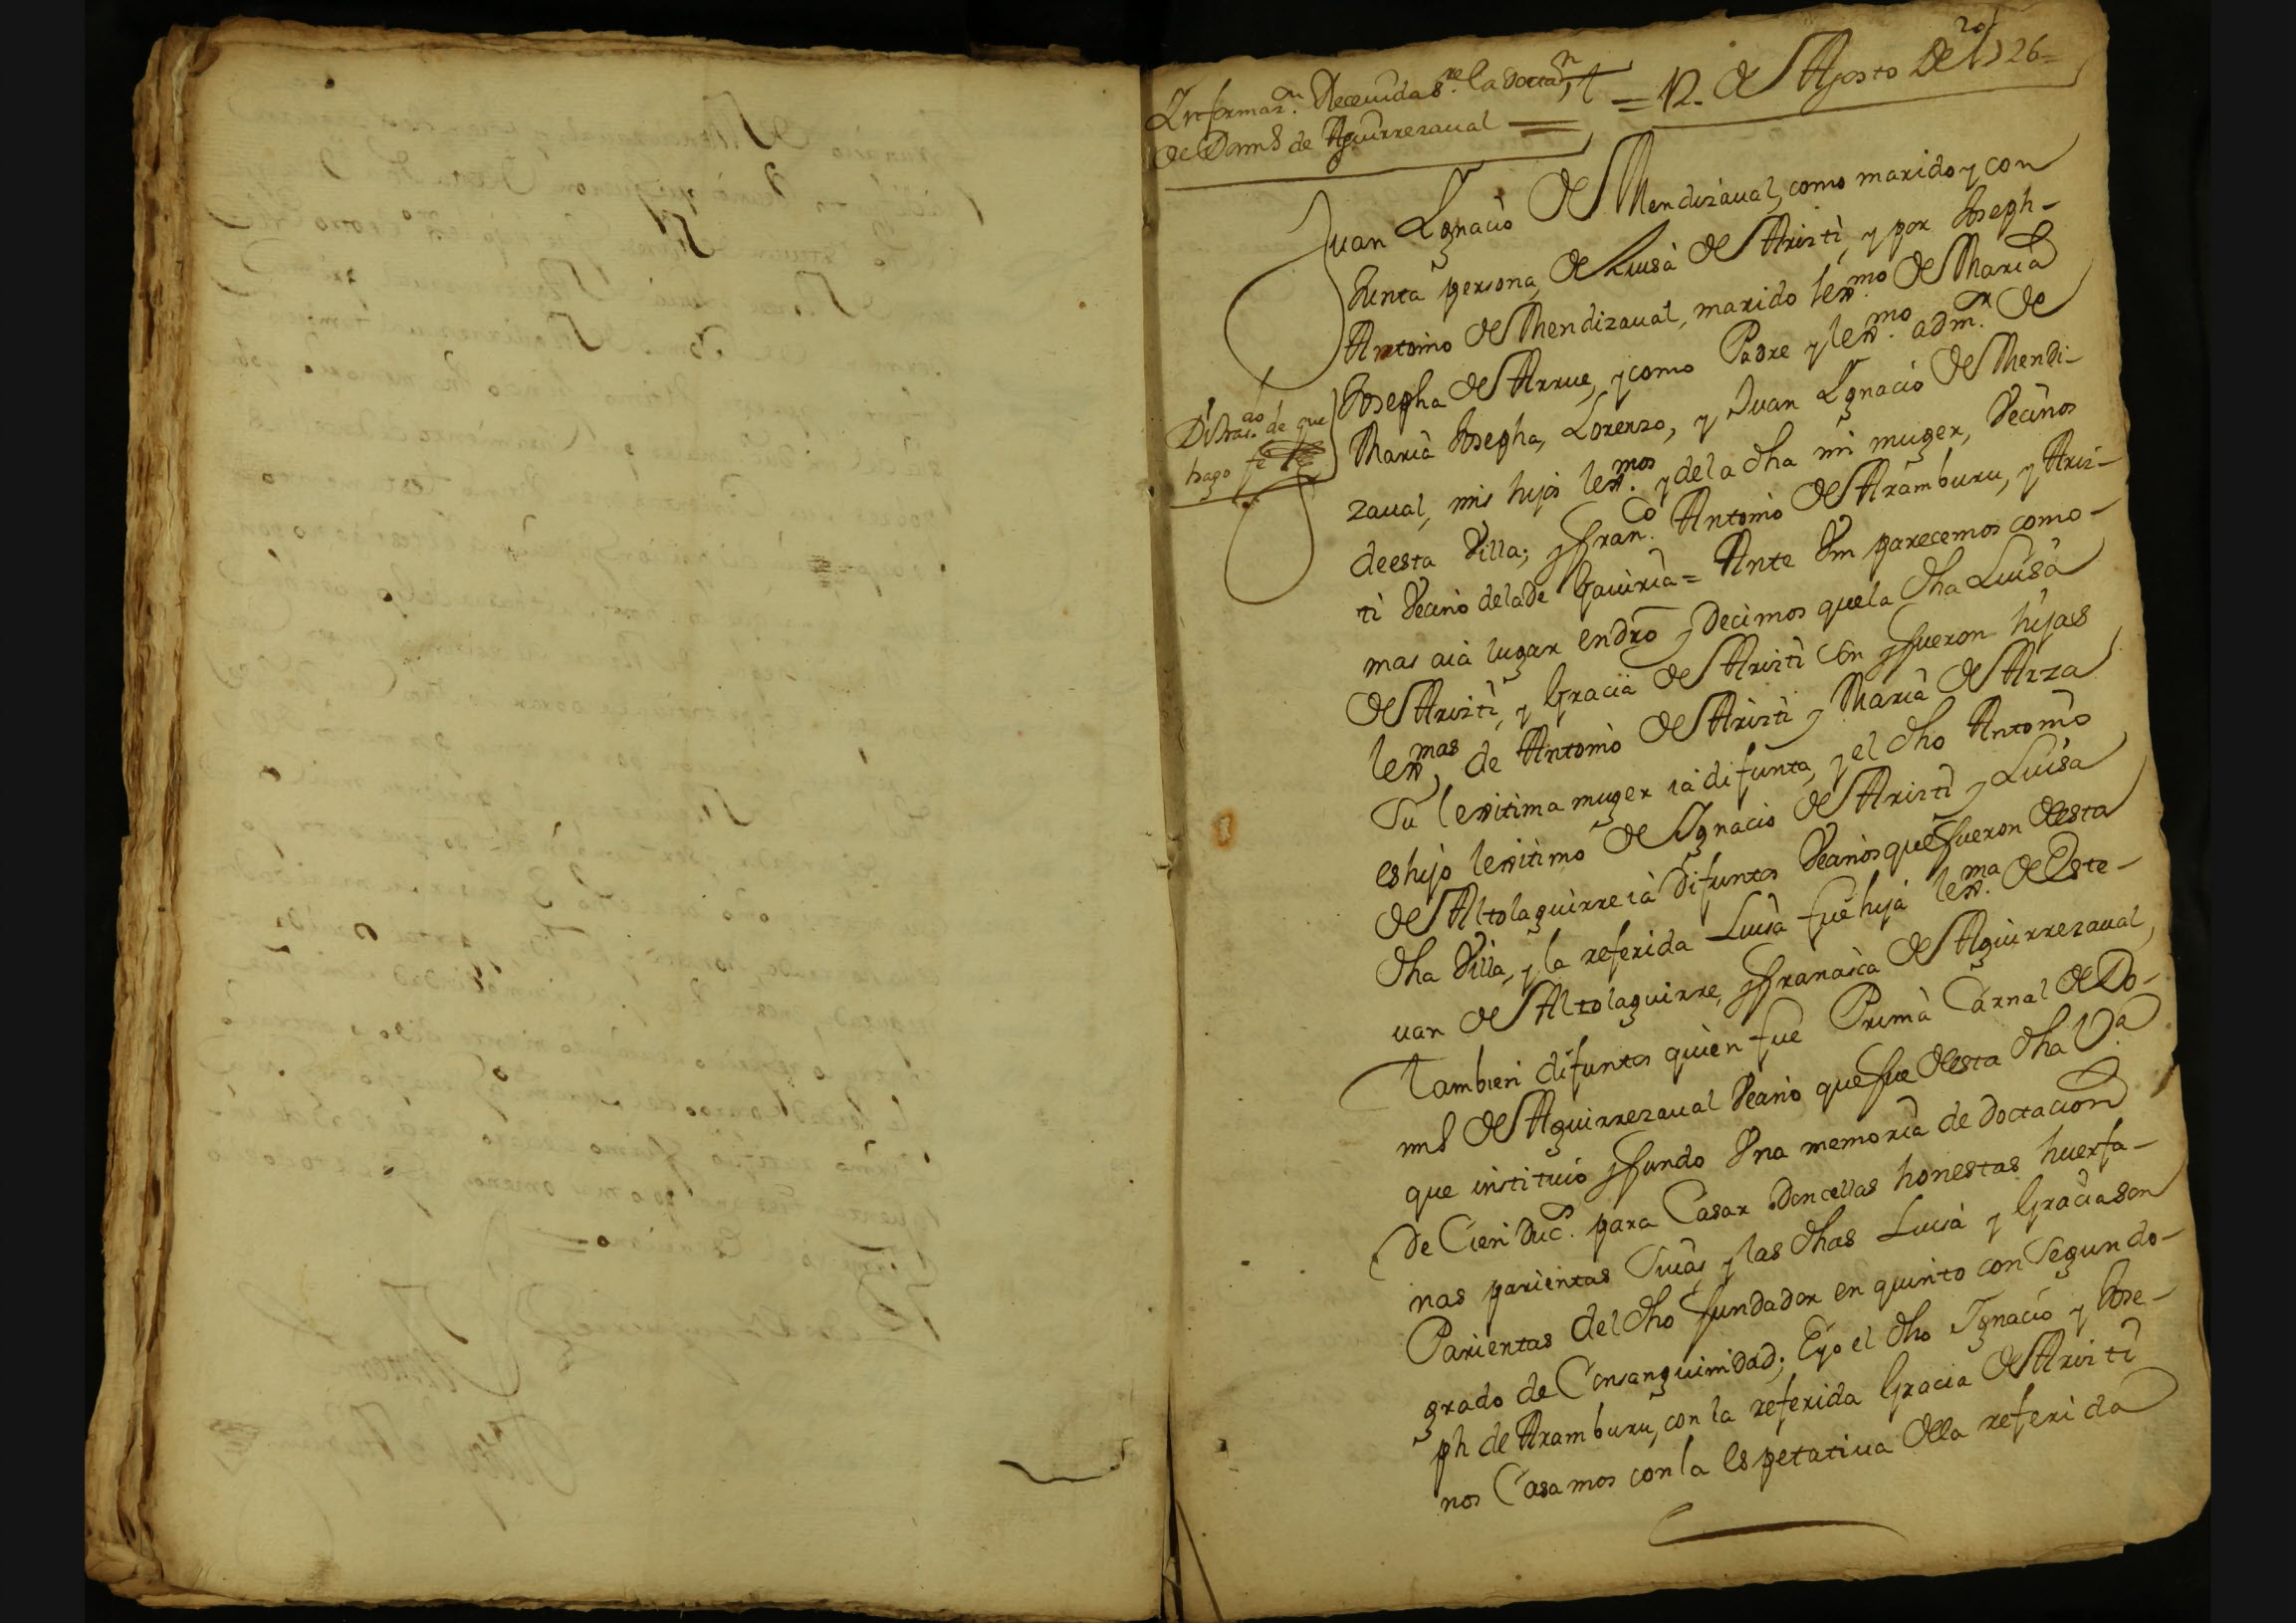 Informaz.on Recevida s.re la Dottaz.n
de Dom.s de Aguirrezaual =
= 12. de Agosto de 1726=
Juan Ygnacio de Mendizaual, como marido y con
Junta persona, de Luisa de Arizti, y por Joseph-
Antonio de Mendizaual, marido lex.mo de Maria
Josepha de Arrue, y como Padre y lex.mo adm.r de
Maria Josepha, Lorenzo, y Juan Ygnacio de Mendi-
zaual, mis hijos lex.mos y de la dha mi muger, Vecinos
de esta Villa; y Fran.co Antonio de Aramburu, y Ariz-
ti Vecino de la de Gauiria = Ante Vm parecemos como-
mas aia lugar en dro y Decimos que la dha Luisa
de Arizti, y Gracia de Arizti son y fueron hijas
lex.mas de Antonio de Arizti y Maria de Arza
Su lexitima muger ia difunta, y el dho Antonio
es hijo lexitimo de Ygnacio de Arizti y Luisa
de Altolaguirre ia Difuntos Vecinos que fueron desta
dha Villa, y la referida Luisa fue hija lex.ma de Este-
uan de Altolaguirre, y Francisca de Aguirrezaual,
tambien difuntos quien fue Prima Carnal de Do-
mns de Aguirrezaual Vecino que fue desta dha V.a
que instituio y fundo Vna memoria de doctacion
de Cien Duc.s para Casar Doncellas honestas huerfa-
nas parientas Suias, y las dhas Luisa y Gracia son
Parientas del dho fundador en quinto con Segundo-
grado de Consanguinidad; E yo el dho Ygnacio y Jose-
ph de Aramburu, con la referida Gracia de Arizti
nos Casamos con la espetatiua de la referida
de que
hago fe